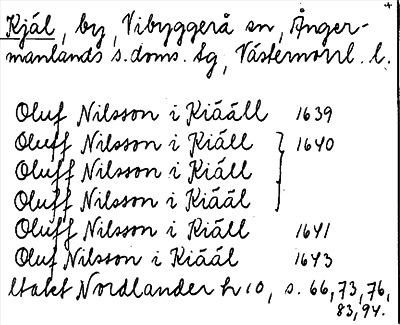 Kjäl, by, Vibyggerå sn, Ånger-
manlands s.doms. tg, Västernorrl. l.
Oluf Nilsson i Kiääll 1639
Oluff Nilsson i Kiäll 1640
Oluff Nilsson i Kiäll
Oluff Nilsson i Kiääl
Oluff Nilsson i Kiäll 1641
Oluf Nilsson i Kiääl 1643
Nordlander h 10, s. 66, 73, 76,
83, 94.